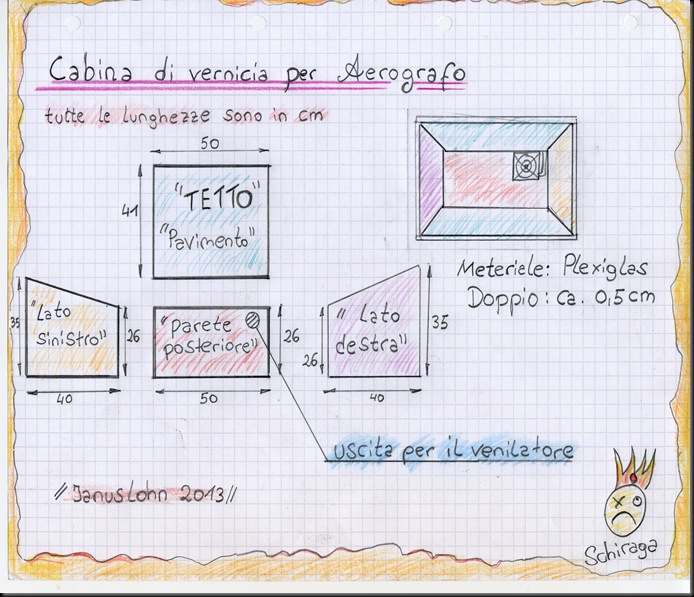 Cabina di vernicia per Aerografo
tutte le lunghezze sono in cm
50
41
"TETTO"
"Pavimento"
Meteriele: Plexiglas
Doppio: ca. 0,5cm
35
"Lato
sinistro"
26
40
"Parete
posteriore"
26
50
26
" Lato
destra"
35
40
uscita per il venilatore
//JanusLohn 2013//
Schiraga